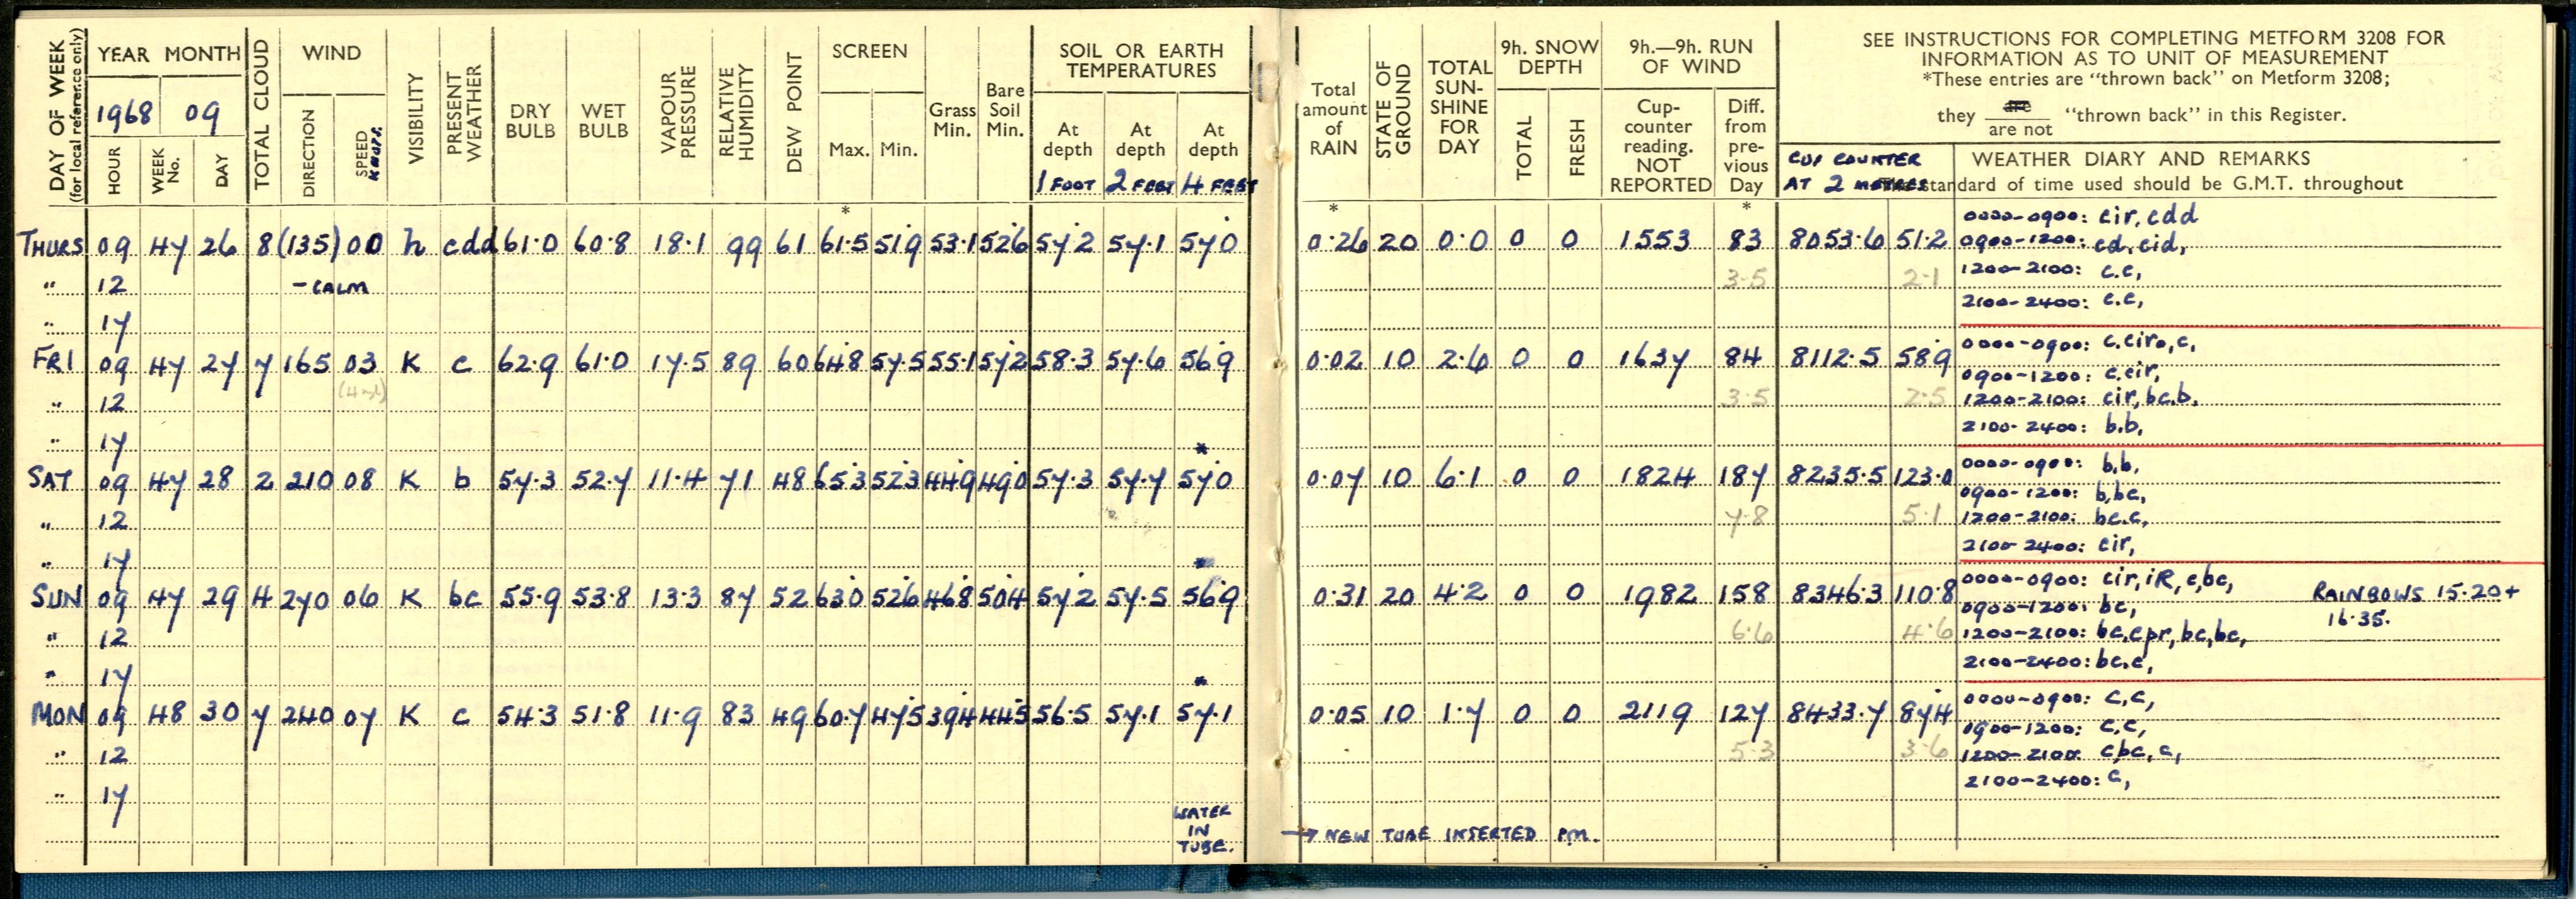 DAY OF WEEK
(for local reference only)
YEAR MONTH
1968 09
HOUR WEEK No. DAY
TOTAL CLOUD
WIND
DIRECTION SPEED KNOTS.
VISIBILITY
PRESENT WEATHER
DRY BULB
WET BULB
VAPOUR PRESSURE
RELATIVE HUMIDITY
DEW POINT
SCREEN
Max. Min.
*
Grass Min.
Bare Soil Min.
SOIL OR EARTH TEMPERATURES
At depth At depth At depth
1 FOOT 2 FEET 4 FEET
Total amount of RAIN
*
STATE OF GROUND
TOTAL SUN-SHINE FOR DAY
9h. SNOW DEPTH
TOTAL FRESH
9h.—9h. RUN OF WIND
Cup-counter reading. NOT REPORTED
Diff. from pre-vious Day
*
SEE INSTRUCTIONS FOR COMPLETING METFORM 3208 FOR
INFORMATION AS TO UNIT OF MEASUREMENT
*These entries are "thrown back" on Metform 3208;
they are / are not "thrown back" in this Register.
CUP COUNTER
AT 2 METRES
WEATHER DIARY AND REMARKS
standard of time used should be G.M.T. throughout
THURS 09 47 26 8 (135) 00 h cdd 61.0 60.8 18.1 99 61 61.5 51.9 53.1 52.6 57.2 57.1 57.0 0.26 20 0.0 0 0 1553 83 8053.6 51.2
0000-0900: cir, cdd
0900-1200: cd, cid,
" 12 - CALM 3.5 2.1 1200-2100: c.c,
2100-2400: c.c,
" 17
FRI 09 47 27 7 165 03 K c 62.9 61.0 17.5 89 60 64.8 57.5 55.1 57.2 58.3 57.6 56.9 0.02 10 2.6 0 0 1637 84 8112.5 58.9
0000-0900: c.ciro, c,
0900-1200: c.cir,
" 12 3.5 2.5 1200-2100: cir, bc.b,
2100-2400: b.b,
" 17 *
SAT 09 47 28 2 210 08 K b 57.3 52.7 11.4 71 48 65.3 52.3 44.9 49.0 57.3 57.7 57.0 0.07 10 6.1 0 0 1824 187 8235.5 123.0
0000-0900: b.b,
0900-1200: b,bc,
" 12 7.8 5.1 1200-2100: bc.c,
2100-2400: cir,
" 17 *
SUN 09 47 29 4 270 06 K bc 55.9 53.8 13.3 87 52 63.0 52.6 46.8 50.4 57.2 57.5 56.9 0.31 20 4.2 0 0 1982 158 8346.3 110.8
0000-0900: cir, iR, c,bc,
0900-1200: bc,
RAINBOWS 15.20+
16.35.
" 12 6.6 4.6 1200-2100: bc, cpr, bc,bc,
2100-2400: bc.c,
" 17 *
MON 09 48 30 7 240 07 K c 54.3 51.8 11.9 83 49 60.7 47.5 39.4 44.5 56.5 57.1 57.1 0.05 10 1.7 0 0 2119 127 8433.7 87.4
0000-0900: c,c,
0900-1200: c,c,
" 12 5.3 3.6 1200-2100: c,bc, c,
2100-2400: c,
" 17
WATER
IN
TUBE.
→ NEW TUBE INSERTED P.M.